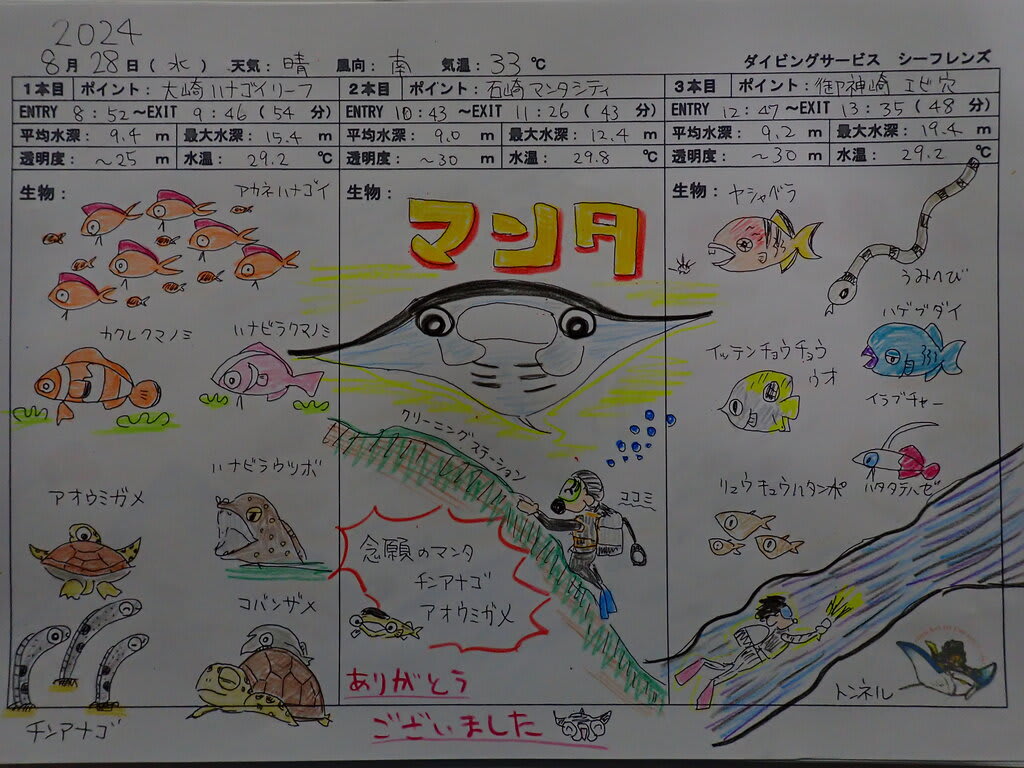 2024
8月28日(水) 天気:晴 風向:南 気温:33℃ ダイビングサービス シーフレンズ
1本目 ポイント:大崎ハナゴイリーフ
ENTRY 8:52~EXIT 9:46(54分)
平均水深:9.4m 最大水深:15.4m
透明度:~25m 水温:29.2℃
生物:
アカネハナゴイ
カクレクマノミ
ハナビラクマノミ
ハナビラウツボ
アオウミガメ
コバンザメ
チンアナゴ
2本目 ポイント:石崎マンタシティ
ENTRY 10:43~EXIT 11:26(43分)
平均水深:9.0m 最大水深:12.4m
透明度:~30m 水温:29.8℃
生物:
マンタ
クリーニングステーション
ココミ
念願のマンタ
チンアナゴ
アオウミガメ
ありがとう
ございました
3本目 ポイント:御神崎 エビ穴
ENTRY 12:47~EXIT 13:35(48分)
平均水深:9.2m 最大水深:19.4m
透明度:~30m 水温:29.2℃
生物:
ヤシャベラ
うみへび
ハゲブダイ
イッテンチョウチョウ
ウオ
イラブチャー
リュウキュウハタンポ
ハタタテハゼ
トンネル